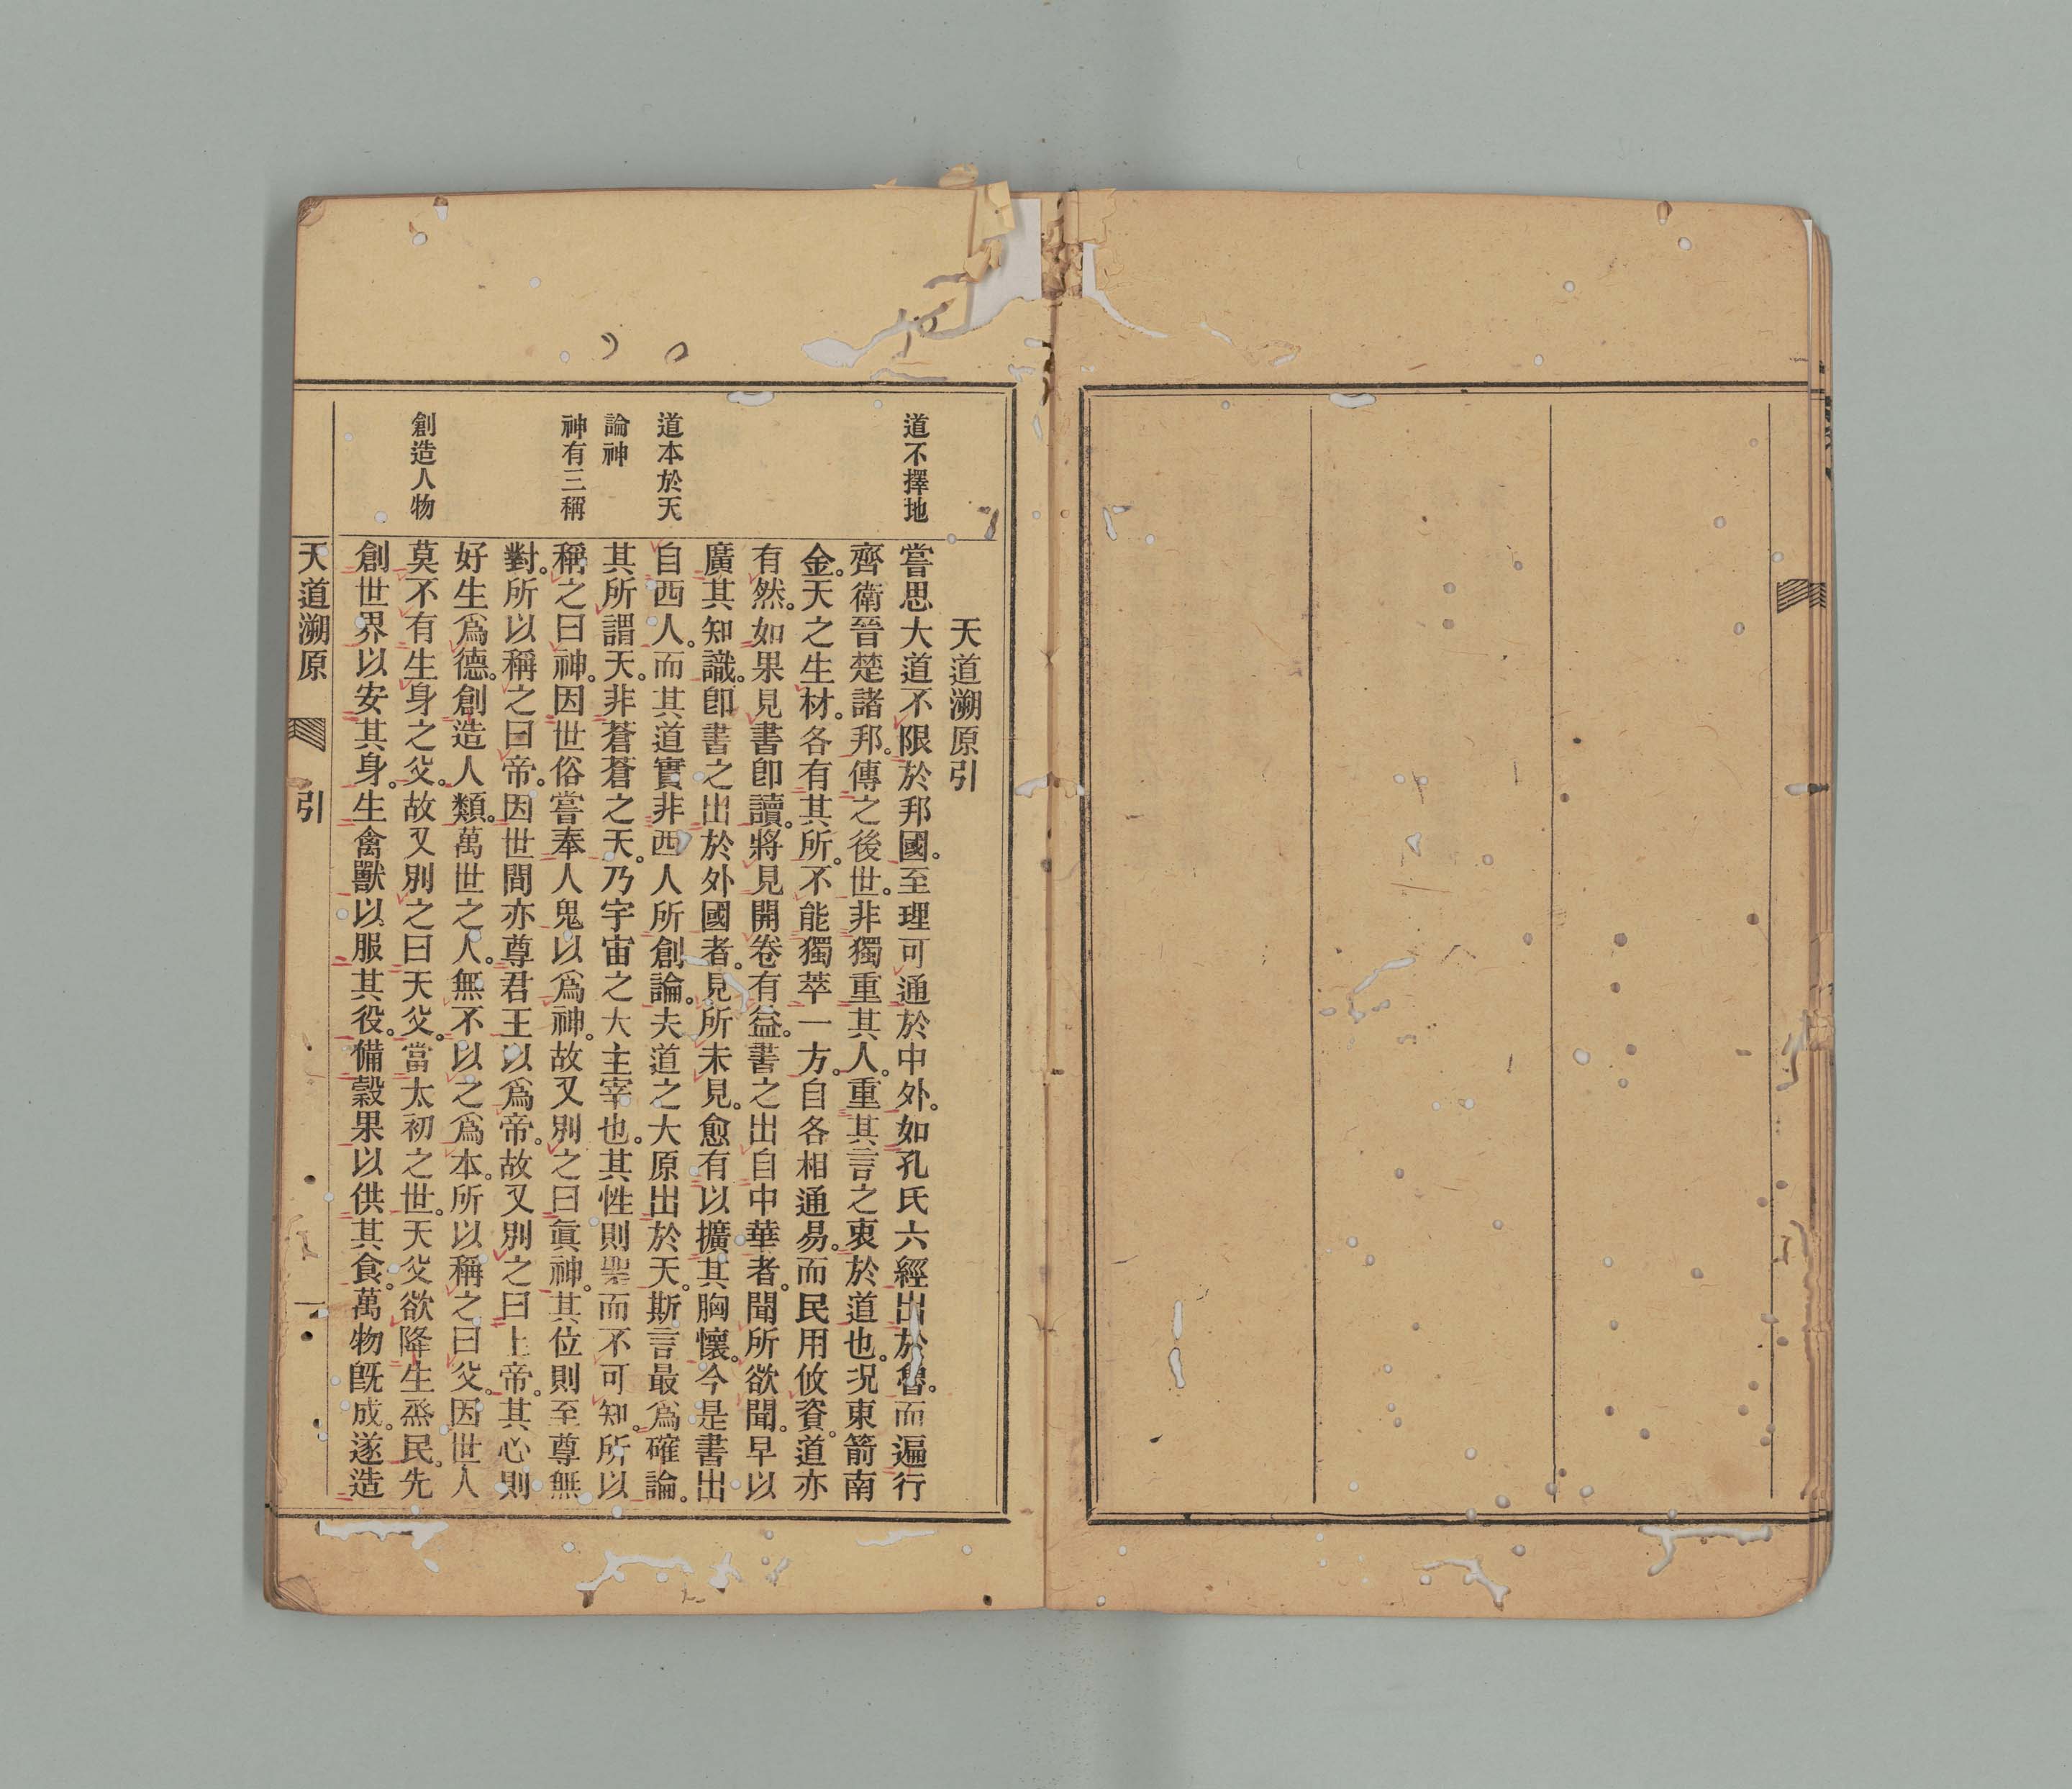 天道溯原引
道不擇地
嘗思大道不限於邦國。至理可通於中外。如孔氏六經出於魯。而遍行
齊衛晉楚諸邦。傳之後世。非獨重其人。重其言之衷於道也。況東箭南
金。天之生材。各有其所。不能獨萃一方。自各相通易。而民用攸資。道亦
有然。如果見書卽讀。將見開卷有益。書之出自中華者。聞所欲聞。早以
廣其知識。卽書之出於外國者。見所未見。愈有以擴其胸懷。今是書出
道本於天
自西人。而其道實非西人所創論。夫道之大原出於天。斯言最爲確論。
論神
其所謂天。非蒼蒼之天。乃宇宙之大主宰也。其性則聖而不可知。所以
神有三稱
稱之曰神。因世俗嘗奉人鬼以爲神。故又別之曰眞神。其位則至尊無
對。所以稱之曰帝。因世間亦尊君王以爲帝。故又別之曰上帝。其心則
好生爲德。創造人類。萬世之人。無不以之爲本。所以稱之曰父。因世人
創造人物
莫不有生身之父。故又別之曰天父。當太初之世。天父欲降生烝民。先
創世界以安其身。生禽獸以服其役。備穀果以供其食。萬物旣成。遂造
天道溯原 引 一